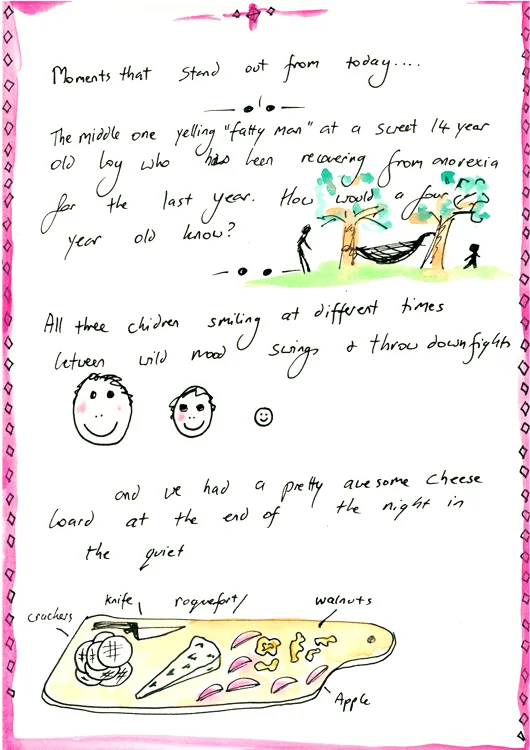 Moments that stand out from today....
The middle one yelling "fatty man" at a sweet 14 year
old boy who has been recovering from anorexia
for the last year. How would a four
year old know?
All three chidren smiling at different times
between wild mood swings & throw down fights
and we had a pretty awesome cheese
board at the end of the night in
the quiet
crackers knife roquefort/ walnuts
Apple